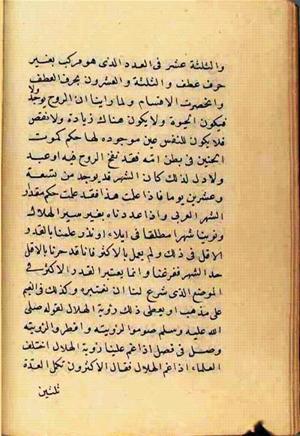 والثلثة عشر فى العدد الذى هو مركب بغير
حرف عطف و الثلثة والعشرون بحرف العطف
وانحصرت الاقسام و لما راينا ان الروح يوجد ولا
فيكون الحيوة ولا يكون هناك زيادة ولا نقص
فلا يكون للنفس عين موجوده لها حكم كموت
الجنين فى بطن امه فقد نفخ الروح فيه او عند
ولاد لذلك كان الشهر قد يوجد من تسعة
وعشرين يوما فاذا علمت هذا فقد علمت حكم مقدار
الشهر العربى واذا عددناه بغير سير الهلال
ونوينا شهرا مطلقا فى ايلاء او نذر علمنا بالقدر
الاقل فى ذلك ولم نعمل بالاكثر فانا قد حزنا بالاقل
حد الشهر ففرغنا وانما يعتبر القدر الاكثر فى
الموضع الذى شرع لنا ان نعتبره وكذلك فى الغيم
على مذهب او يعطى ذلك رؤية الهلال لقوله صلى
الله عليه وسلم صوموا لرؤيته وافطروا لرؤيته
وصل فى فصل اذا غم علينا رؤية الهلال اختلف
العلماء اذا غم الهلال فقال الاكثرون تكمل العدة
ثلثين